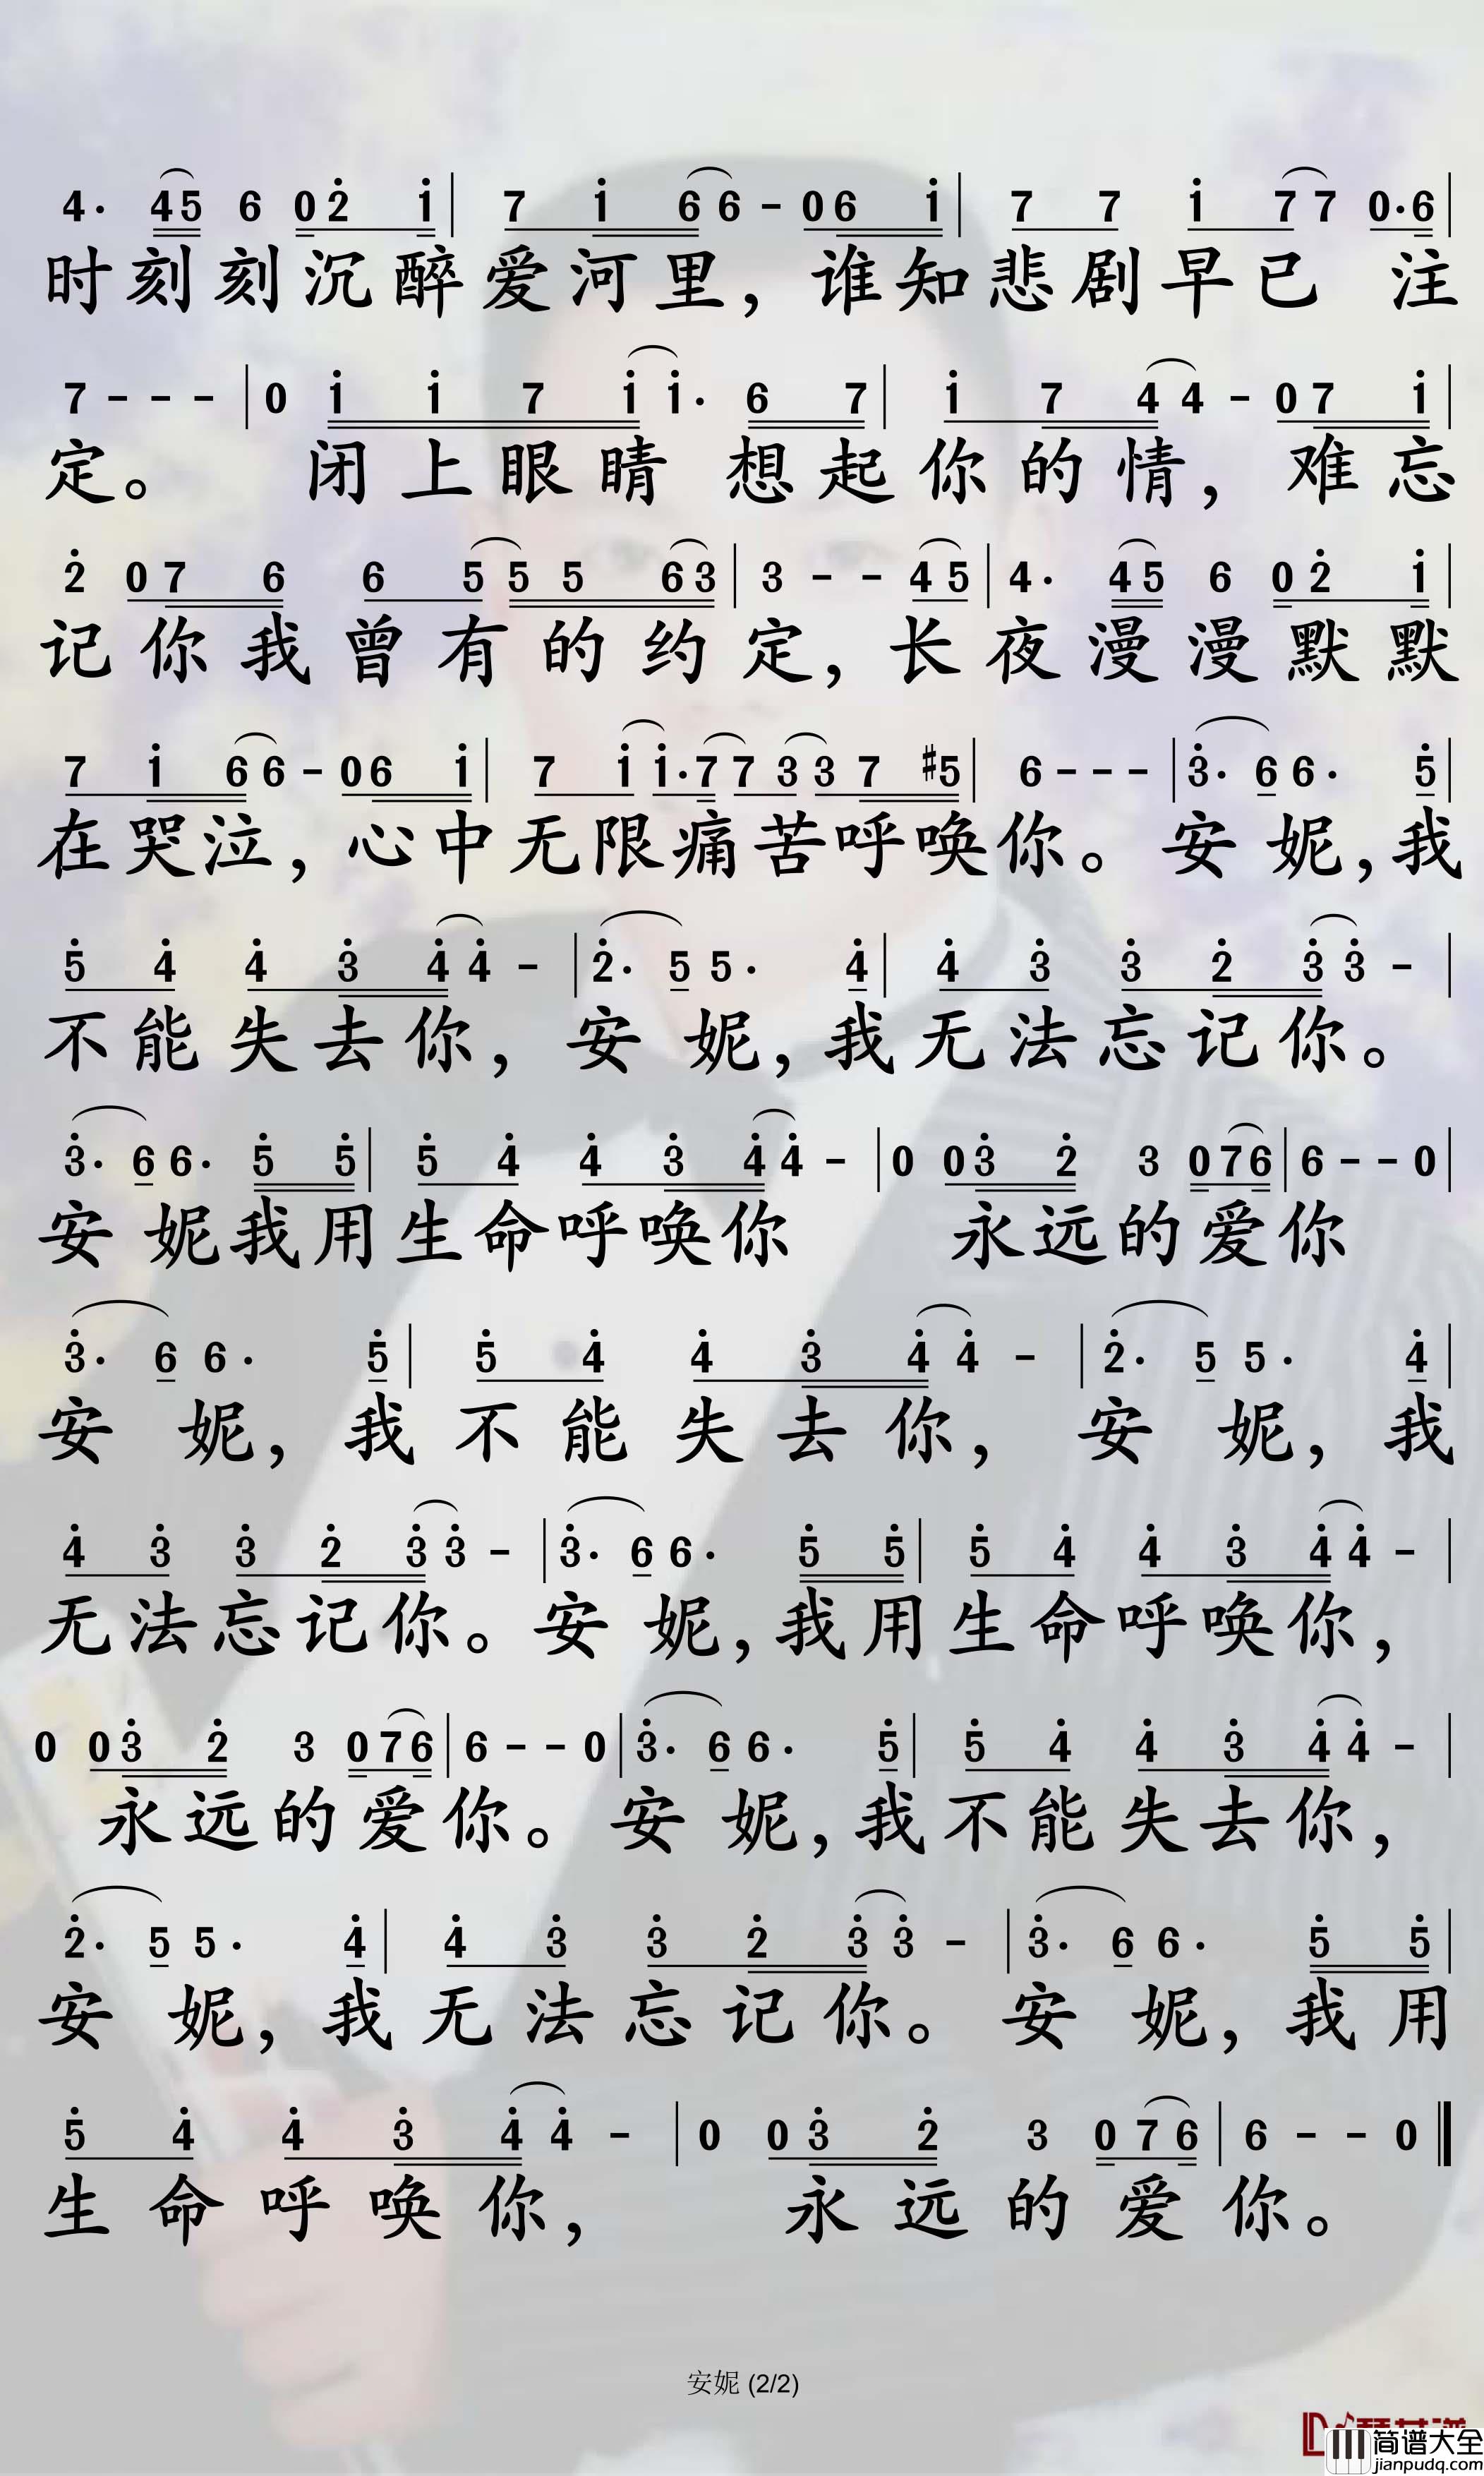 4· 45 6 02̇ 1̇ | 7 1̇ 66 - 06 1̇ | 7 7 1̇ 77 0·6 |
时刻刻沉醉爱河里，谁知悲剧早已 注
7 - - - | 0 1̇ 1̇ 7 1̇1̇· 6 7 | 1̇ 7 44 - 07 1̇ |
定。 闭上眼睛 想起你的情，难忘
2̇ 07 6 6 55 5 63 | 3 - - 45 | 4· 45 6 02̇ 1̇ |
记你我曾有的约定，长夜漫漫默默
7 1̇ 66 - 06 1̇ | 7 1̇1̇·77 33 7 #5 | 6 - - - | 3̇· 66· 5̇ |
在哭泣，心中无限痛苦呼唤你。安妮，我
5̇ 4̇ 4̇ 3̇ 4̇4̇ - | 2̇· 55· 4̇ | 4̇ 3̇ 3̇ 2̇ 3̇3̇ - |
不能失去你，安妮，我无法忘记你。
3̇· 66· 5̇ 5̇ | 5̇ 4̇ 4̇ 3̇ 4̇4̇ - | 0 03̇ 2̇ 3 076 | 6 - - 0 |
安妮我用生命呼唤你 永远的爱你
3̇· 66· 5̇ | 5̇ 4̇ 4̇ 3̇ 4̇4̇ - | 2̇· 55· 4̇ |
安妮，我不能失去你，安妮，我
4̇ 3̇ 3̇ 2̇ 3̇3̇ - | 3̇· 66· 5̇ 5̇ | 5̇ 4̇ 4̇ 3̇ 4̇4̇ - |
无法忘记你。安妮，我用生命呼唤你，
0 03̇ 2̇ 3 076 | 6 - - 0 | 3̇· 66· 5̇ | 5̇ 4̇ 4̇ 3̇ 4̇4̇ - |
永远的爱你。安妮，我不能失去你，
2̇· 55· 4̇ | 4̇ 3̇ 3̇ 2̇ 3̇3̇ - | 3̇· 66· 5̇ 5̇ |
安妮，我无法忘记你。安妮，我用
5̇ 4̇ 4̇ 3̇ 4̇4̇ - | 0 03̇ 2̇ 3 076 | 6 - - 0 ‖
生命呼唤你，永远的爱你。
安妮 (2/2)
简谱大全
jianpudq.com